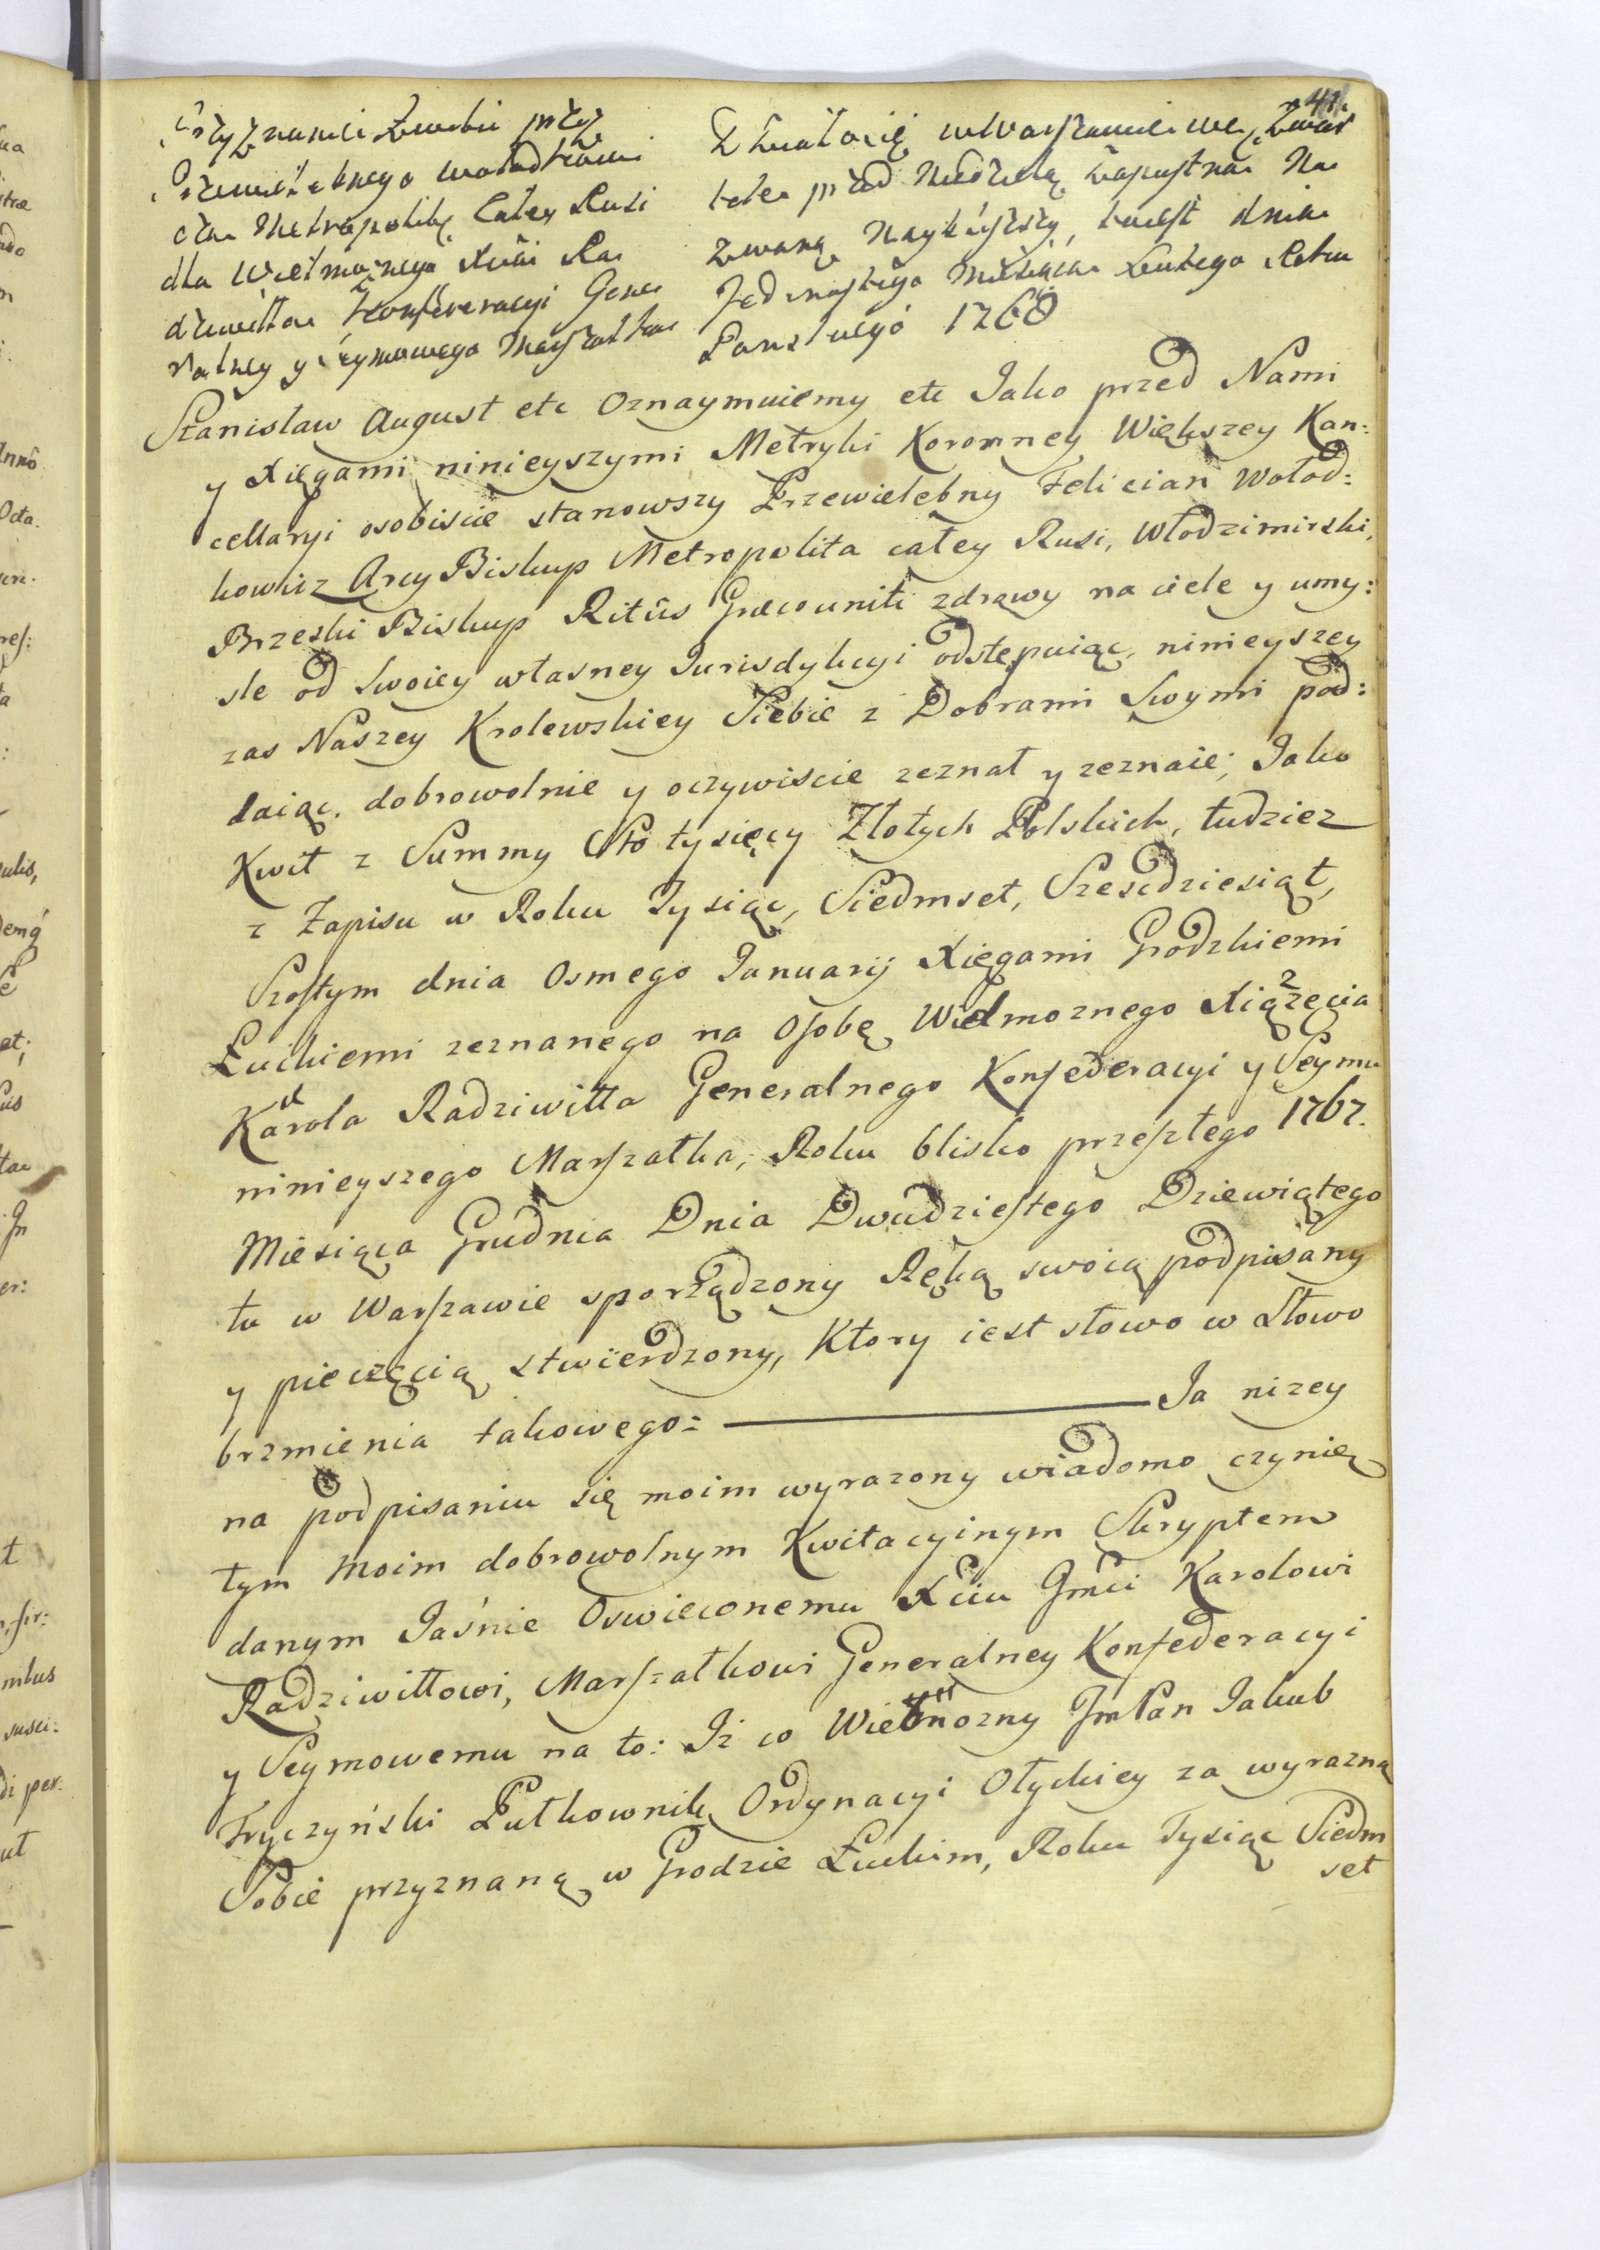 41.
Przyznanie Kwitu przez
Przewielebnego Wołodkowi
cza Metropolitę Całey Rusi
dla Wielmożnego Xcia Ra
dziwiłła Konfederacyi Gene
ralney y Seymowego Marszałka
Działo się w Warszawie we Czwar
tek przed Niedzielą Zapustną Na
zwaną Naybliższy, to iest dnia
Jedenastego Miesiąca Lutego Roku
Panskiego 1768
Stanisław August etc Oznaymuiemy etc Jako przed Nami
y Xięgami ninieyszymi Metryki Koronney Większey Kan:
cellaryi osobiscie stanowszy Przewielebny Felician Wołod:
kowicz Arcy Biskup Metropolita całey Rusi, Włodzimirski,
Brzeski Biskup Ritûs Græcouniti zdrawy na ciele y umy:
sle od Swoiey własney Jurisdykcyi odstępuiąc, ninieyszey
zas Naszey Krolewskiey Siebie z Dobrami Swymi pod:
daiąc, dobrowolnie y oczywiscie zeznał y zeznaie; Jako
Kwit z Summy Sto tysięcy Złotych Polskich, tudziez
z Zapisu w Roku Tysiąc, Siedmset, Szescdziesiąt,
Szostym dnia Osmego Januarij Xięgami Grodzkiemi
Łuckiemi zeznanego na Osobę Wielmoznego Xiązęcia
Karola Radziwiłła Generalnego Konfederacyi y Seymu
ninieyszego Marszałka, Roku blisko przeszłego 1767.
Miesiąca Grudnia Dnia Dwudziestego Dziewiątego
tu w Warszawie sporządzony Ręką swoią podpisany
y pieczęcią stwierdzony, Ktory iest słowo w Słowo
brzmienia takowego: Ja nizey
na podpisaniu się moim wyrazony wiadomo czynię
tym moim dobrowolnym Kwitacyinym Skryptem
danym Jaśnie Oswieconemu Xciu Jmci Karolowi
Radziwiłłowi, Marszałkowi Generalney Konfederacyi
y Seymowemu na to: Iz co Wielmozny JmPan Jakub
Fryczyński Pułkownik Ordynacyi Ołyckiey za wyrazną
Sobie przyznaną w Grodzie Łuckim, Roku Tysiąc Siedm
set